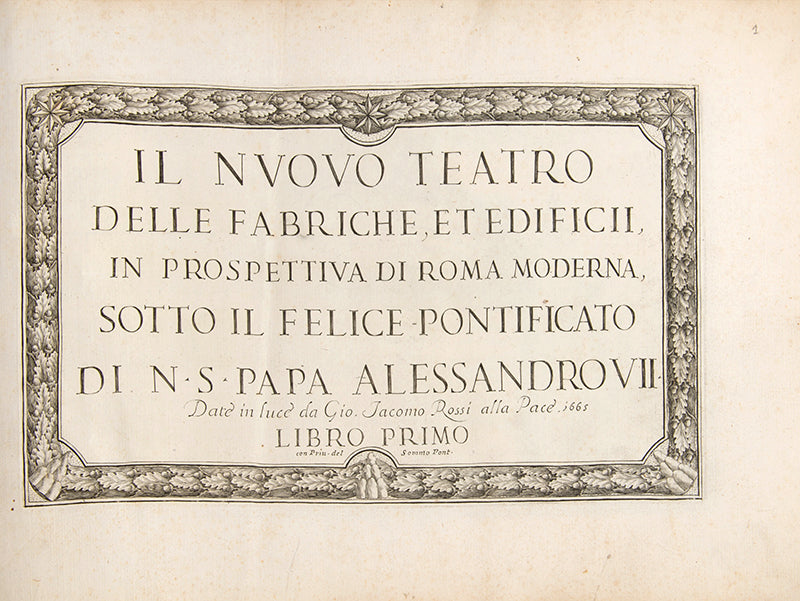 1
IL NVOVO TEATRO
DELLE FABRICHE, ET EDIFICII,
IN PROSPETTIVA DI ROMA MODERNA,
SOTTO IL FELICE PONTIFICATO
DI N·S·PAPA ALESSANDRO VII·
Date in luce da Gio. Iacomo Rossi alla Pace .1665
LIBRO PRIMO
con Priu. del Sommo Pont.